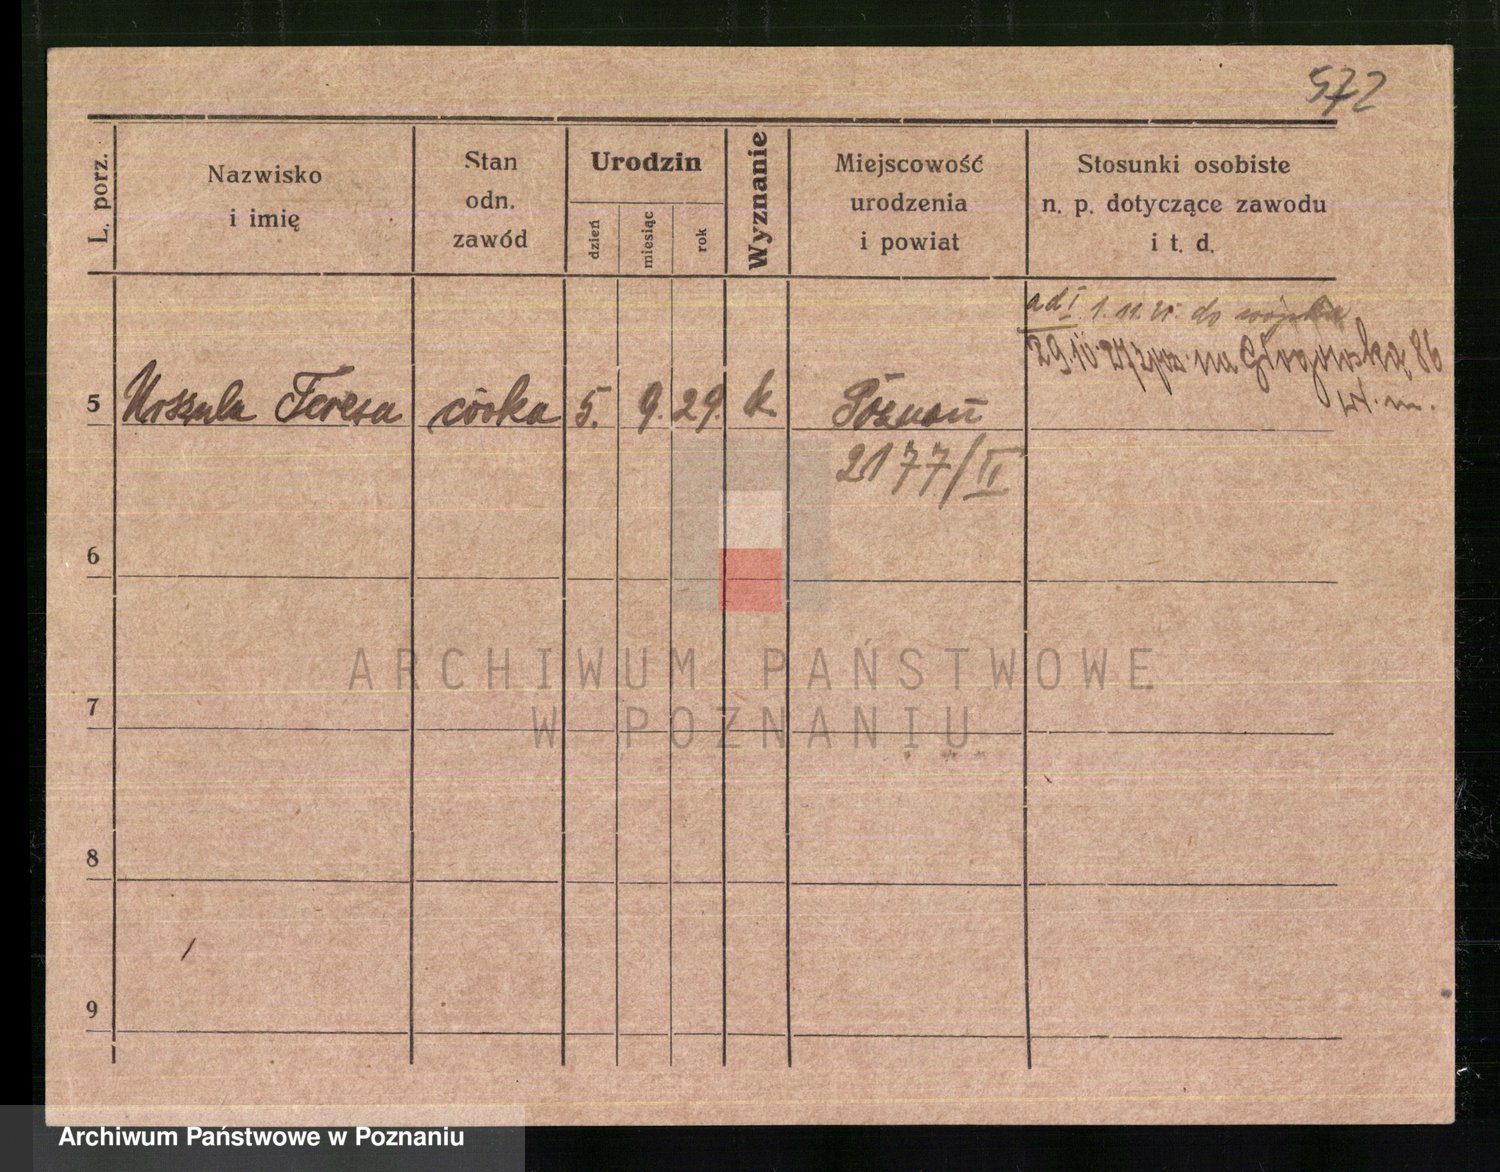 572
L. porz.
Nazwisko
i imię
Stan
odn.
zawód
Urodzin
dzień
miesiąc
rok
Wyznanie
Miejscowość
urodzenia
i powiat
Stosunki osobiste
n. p. dotyczące zawodu
i t. d.
ad I 1.11.21. do wojska
29.10.27 na Głogowską 86
m.
5 Urszula Teresa córka 5. 9. 29. k. Poznań
2177/II
6
7
8
9
ARCHIWUM PAŃSTWOWE
W POZNANIU
Archiwum Państwowe w Poznaniu